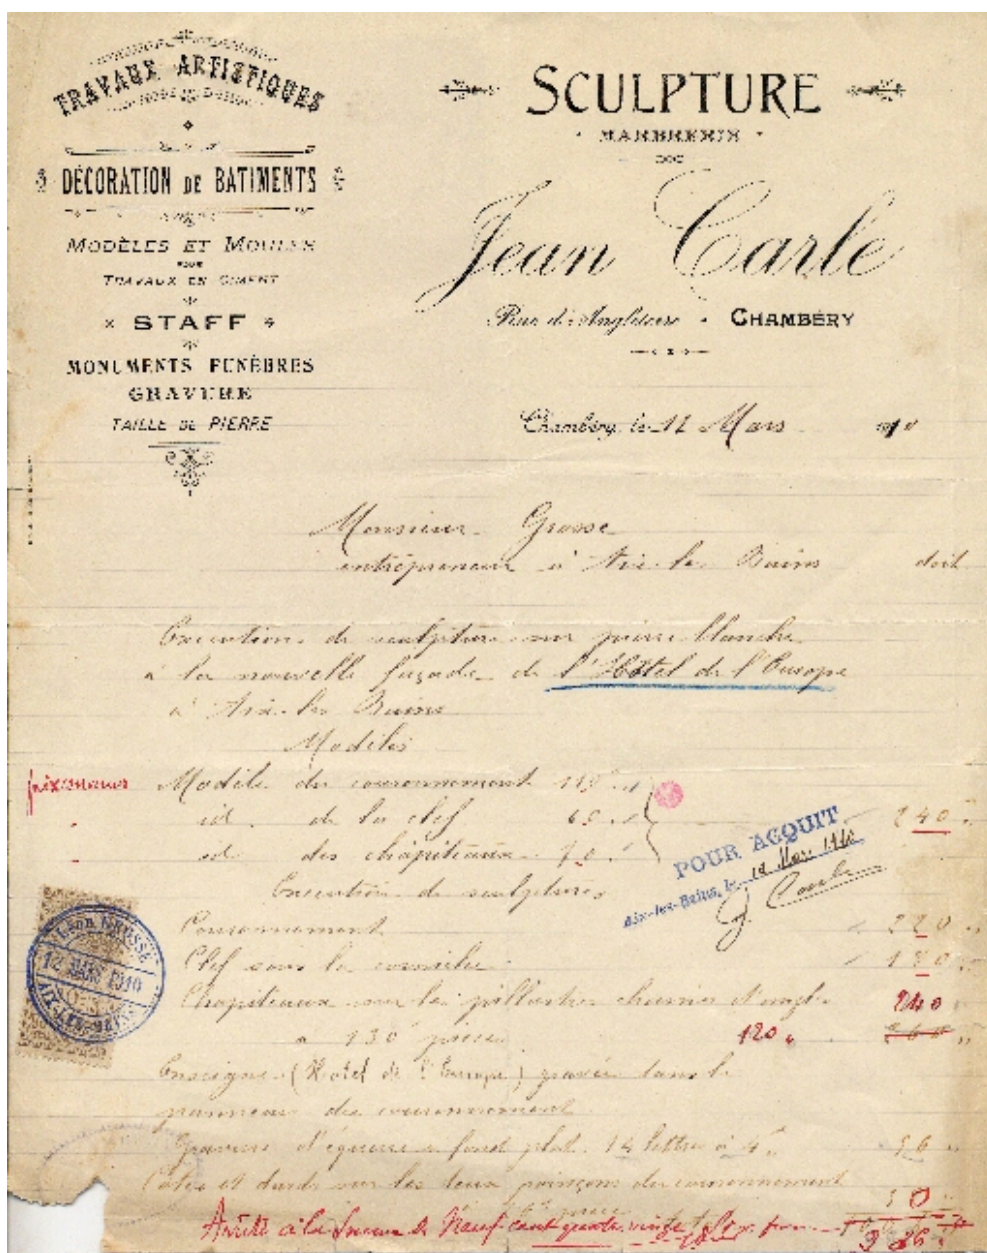 TRAVAUX ARTISTIQUES
DÉCORATION DE BATIMENTS
MODÈLES ET MOULES
POUR
TRAVAUX EN CIMENT
STAFF
MONUMENTS FUNÈBRES
GRAVURE
TAILLE DE PIERRE
SCULPTURE
MARBRERIE
Jean Carle
Rue d'Angleterre CHAMBÉRY
Chambéry, le 12 Mars 1910
Monsieur Grosse
entrepreneur à Aix-les Bains doit
Execution de sculpture sur pierre blanche
à la nouvelle façade de l'Hôtel de l'Europe
à Aix-les Bains
Modèles
Modèle du couronnement 110
id de la clef 60
id des chapiteaux 70
240
POUR ACQUIT
Aix-les-Bains, le 12 Mars 1910
J. Carle
Execution de sculptures
Couronnement 220
Clef sous la corniche
Léon GROSSE
12 MARS 1910
AIX-LES-BAINS
Chapiteaux sur les pillastres d'angle 240
à 130 pièce 120 260
Enseigne (Hotel de l'Europe) gravée dans le
panneau du couronnement
Gravure d'équerre à fond plat 14 lettres à 4 56
sur les deux poinçons du couronnement
Arrêté à la Somme de Neuf cent